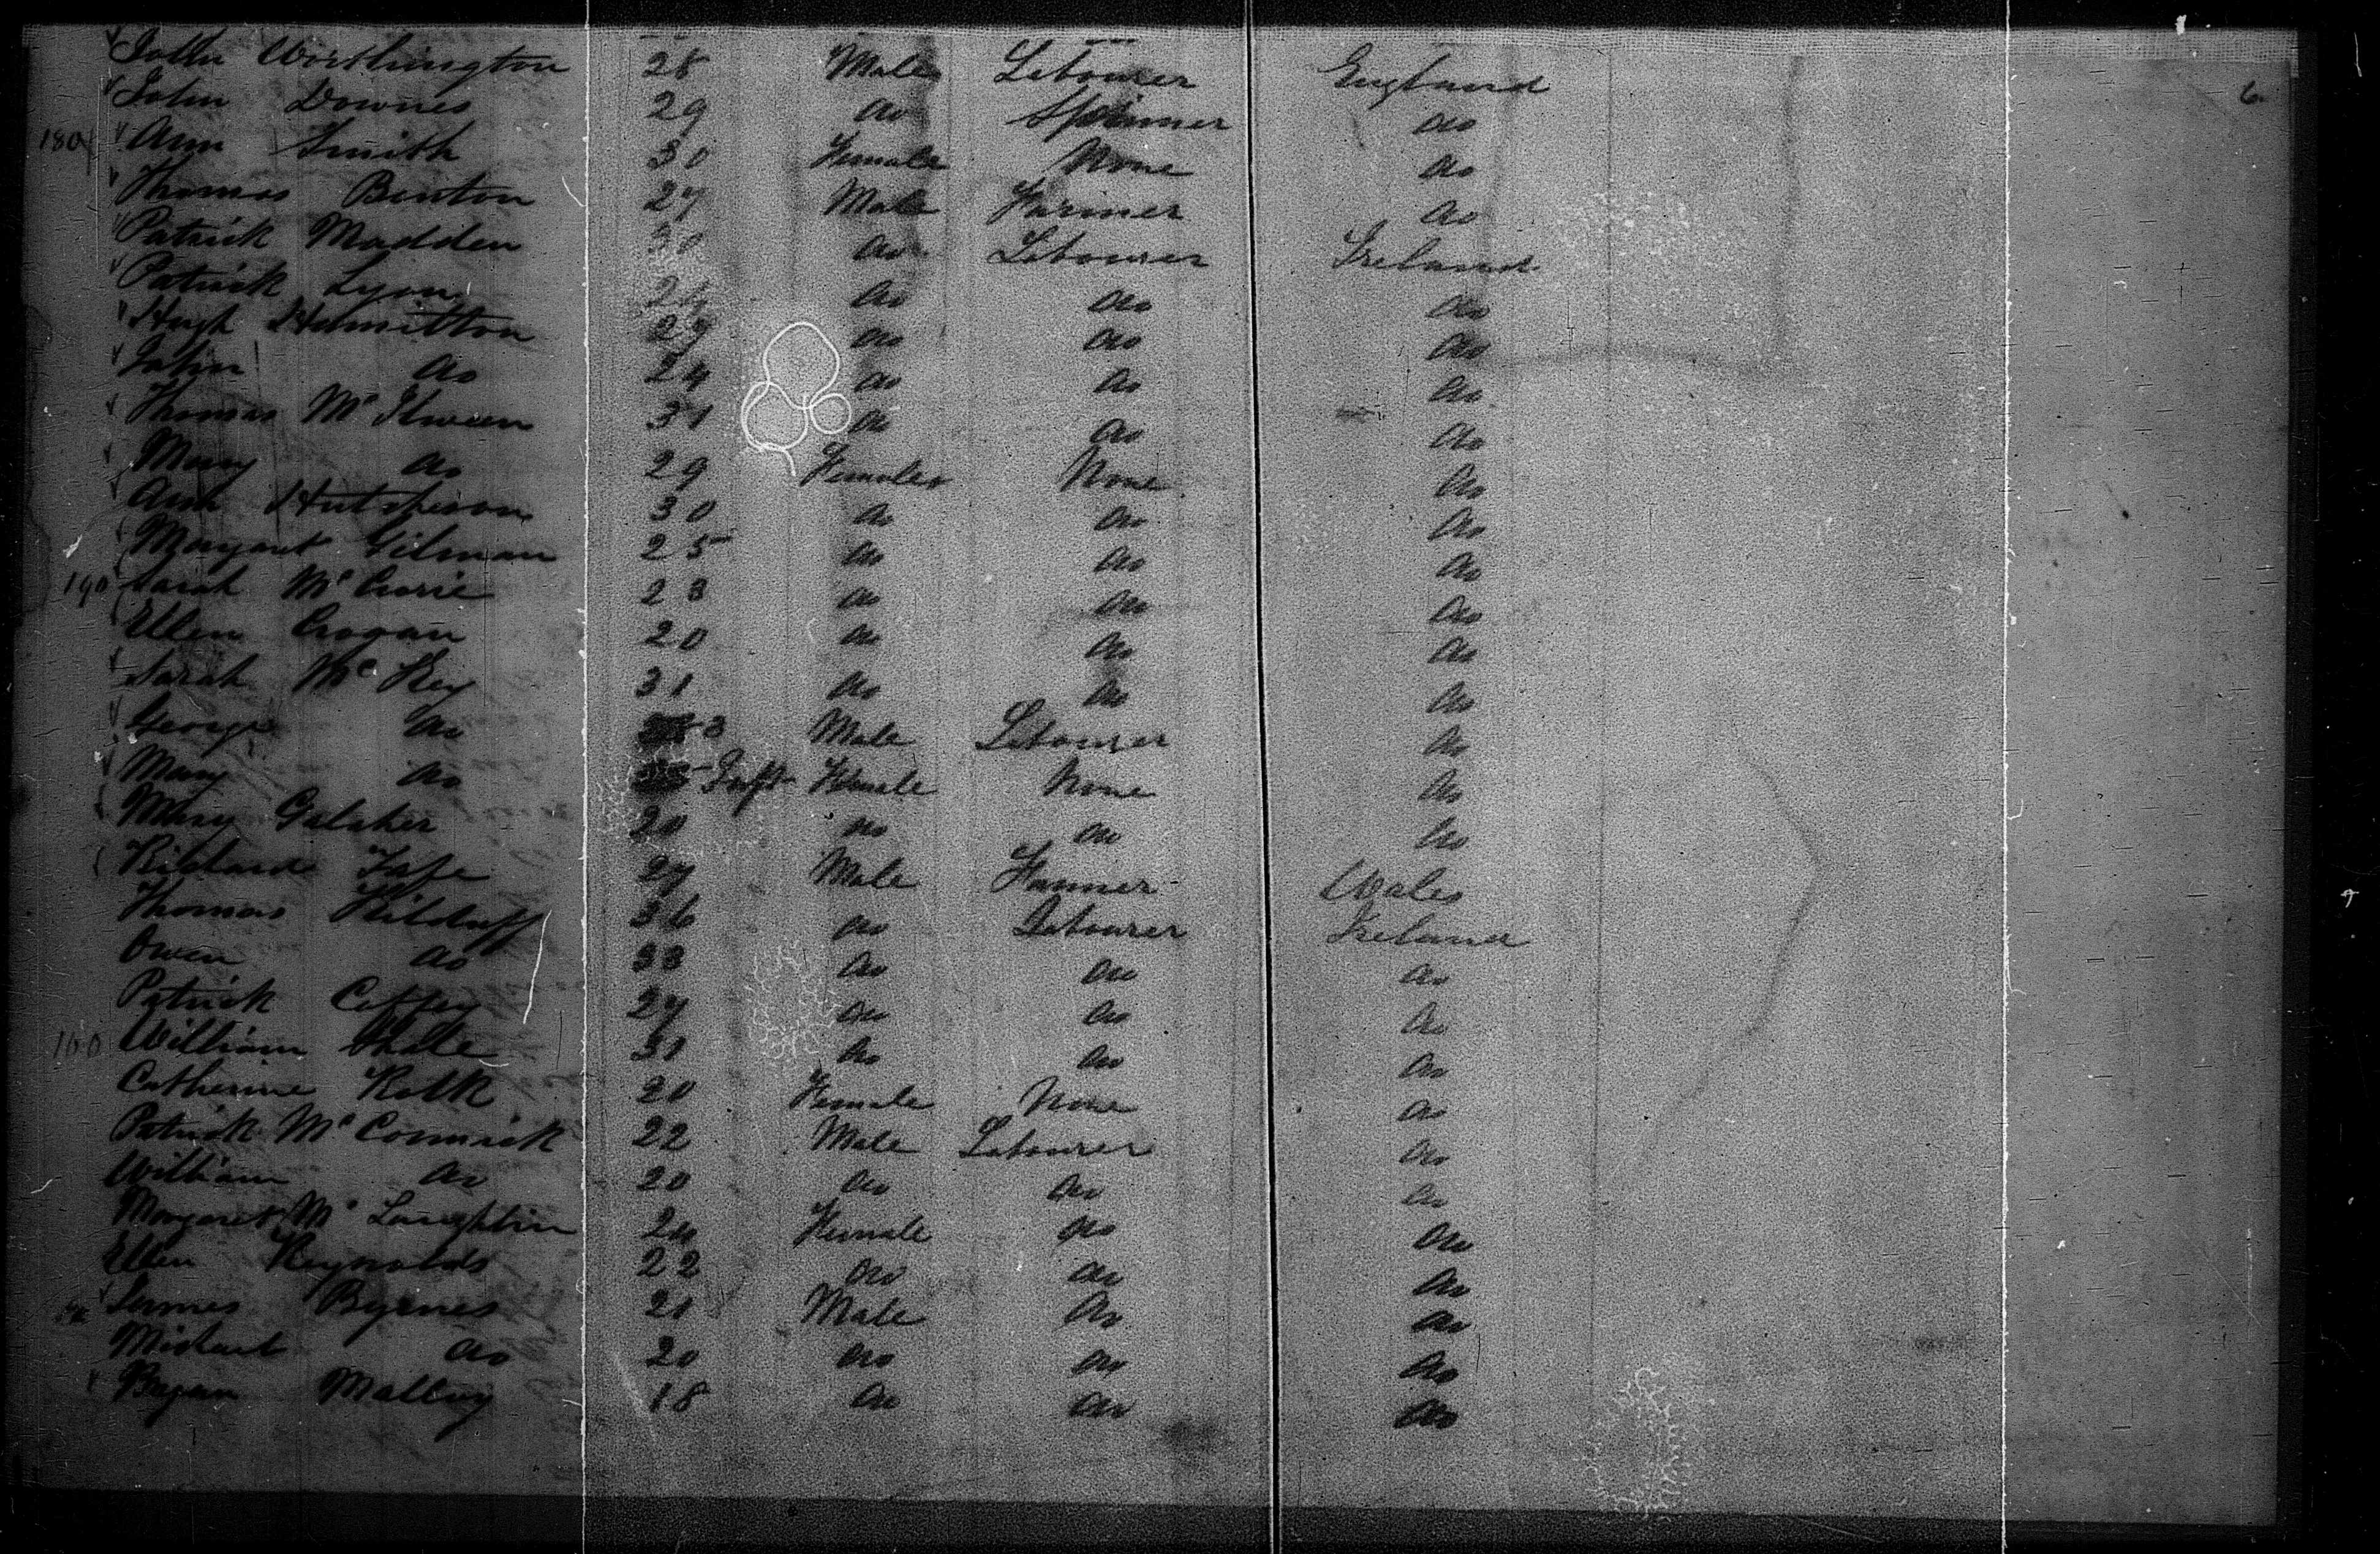 6
John Worthington 28 Male Labourer England
John Downes 29 do Spinner do
180 Ann Smith 30 Female None do
Thomas Benton 27 Male Farmer do
Patrick Madden 30 do Labourer Ireland
Patrick Lyons 24 do do do
Hugh Hamilton 27 do do do
John do 24 do do do
Thomas Mc 31 do do do
Mary do 29 Female None do
Ann Hutcheson 30 do do do
Margaret Gilman 25 do do do
190 Sarah Mc Crorie 23 do do do
Ellen Crogan 20 do do do
Sarah Mc Key 31 do do do
George do 3 Male Labourer do
Mary do Inft Female None do
Mary Gelaher 20 do do do
Richard 27 Male Farmer Wales
Thomas Kilduff 36 do Labourer Ireland
Owen do 33 do do do
Patrick Coffey 27 do do do
100 William 31 do do do
Catherine 20 Female None do
Patrick Mc Cormick 22 Male Labourer do
William do 20 do do do
Margaret Mc Laughlin 24 Female do do
Ellen Reynolds 22 do do do
James Byrnes 21 Male do do
Michael do 20 do do do
18 do do do